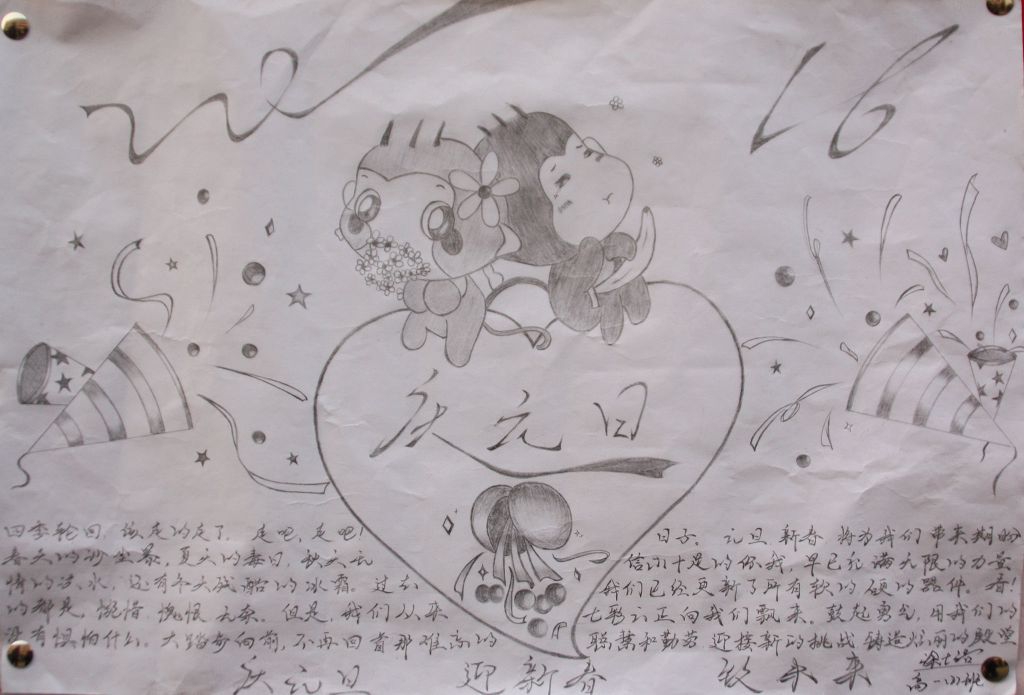 16
庆元旦
四季轮回，该走的走了，走吧，走吧！
春天的沙尘暴，夏天的毒日，秋天无
情的洪水，还有冬天残酷的冰霜。过去
的都是惋惜、愧恨、无奈。但是，我们从来
没有惧怕什么。大踏步向前，不再回首那难忘的
日子。元旦新春 将为我们带来期盼
信心十足的你我，早已充满无限的力量
我们已经更新了所有软的硬的器件。看！
七彩云正向我们飘来。鼓起勇气，用我们的
聪慧和勤劳 迎接新的挑战 铸造炫丽的殿堂
庆元旦 迎新春 致未来
高一